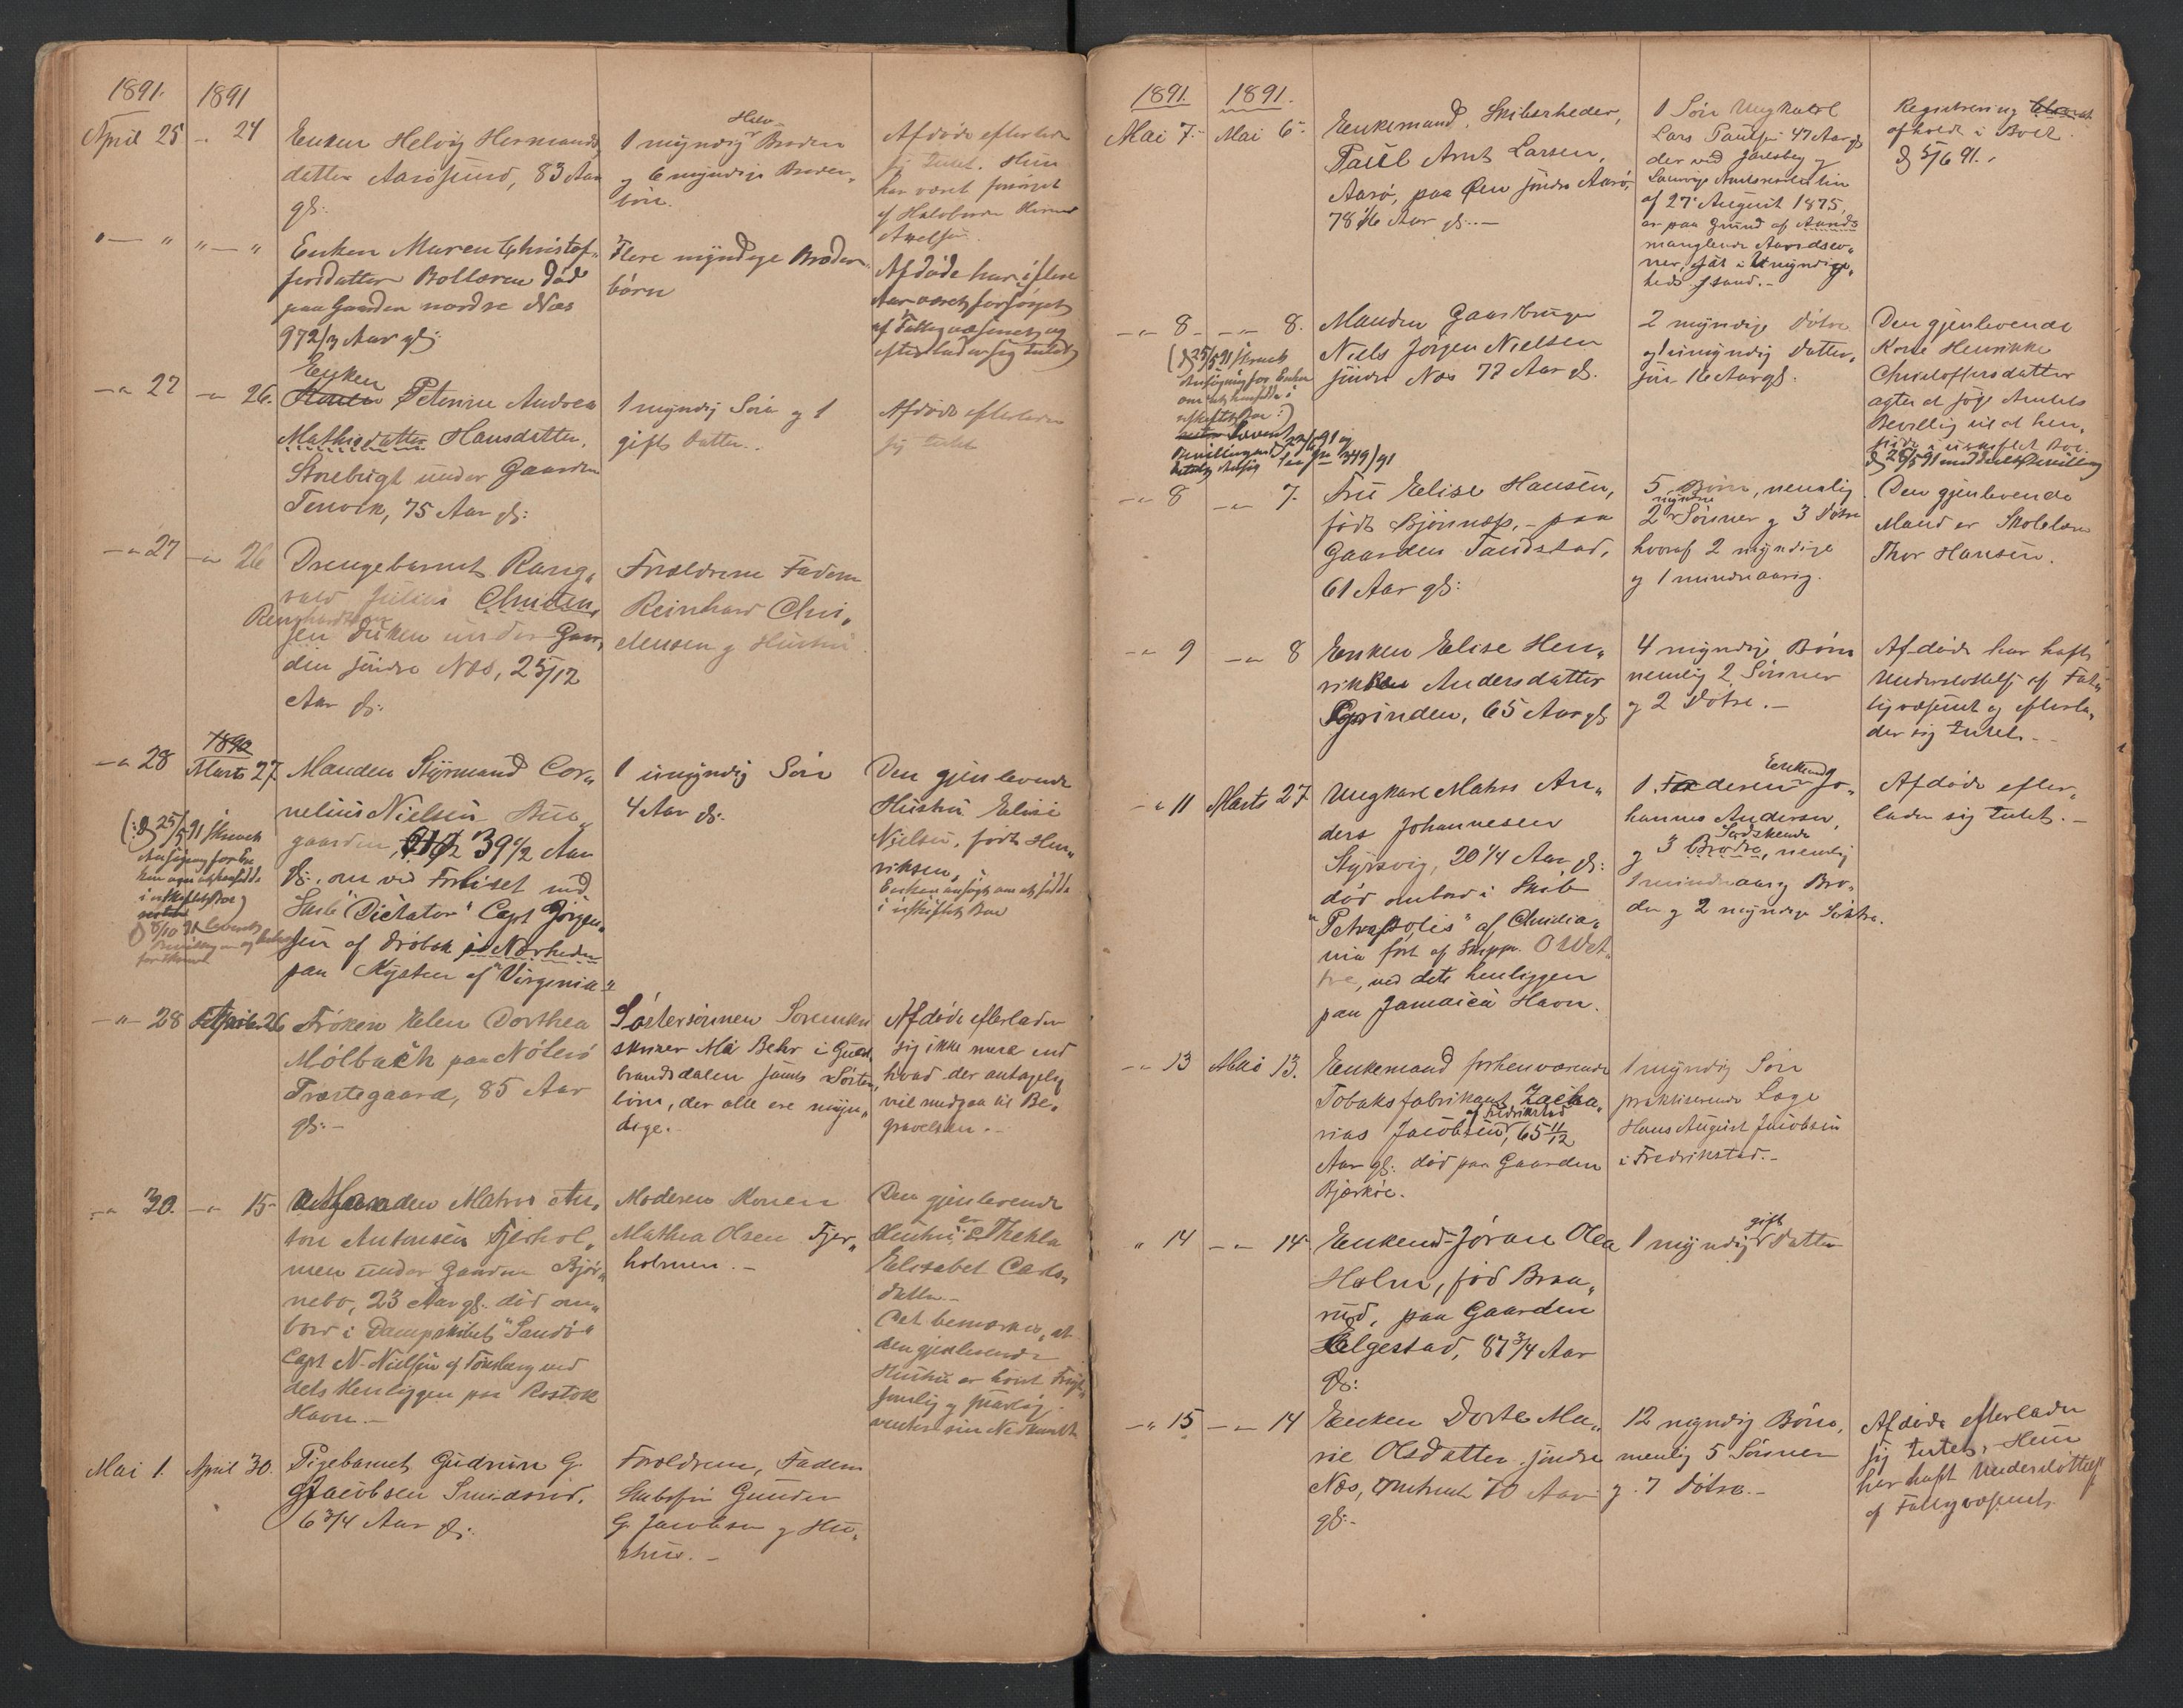 1891. 1891
April 25 -" 24
Enken Helvig Hermands-
datter Aarösund, 83 Aar
gl:
1 myndig Halv-Broder
og 6 myndige Broder-
börn.
Afdöde efterlader
sig Intet. Hun
har været forsörget
af Halvbroder
"— " "—"
Enken Maren Christof-
fersdatter Bollæren död
paa Gaarden nordre Næs
97 2/3 Aar gl:
Flere myndige Broder-
börn
Afdöde har i flere
Aar været forsörget
af Fattigvæsenet og
efterlader sig Intet
—" 27 —" 26.
Enken
Petrine Andrea
Mathisdatter Hansdatter,
Storebugt under Gaarden
Tenvik, 75 Aar gl:
1 myndig Sön og 1
gift Datter.
Afdöde efterlader
sig Intet
—" 27 —" 26
Drengebarnet Rang-
vald Julius Christen-
Reinhardsen
sen Duken under Gaar-
den söndre Næs, 2 5/12
Aar gl:
Forældrene Faderen
Reinhard Chri-
stensen og Hustru
—" 28
1890
Marts 27.
Manden Styrmand Cor-
nelius Nielsen Bue-
gaarden, 39 1/2 Aar
gl:, om ved Forliset med
Skib "Dictator" Capt Jörgen-
sen af Dröbak i Nærheden
paa Kysten af "Virginia"
1 umyndig Sön
4 Aar gl:
Den gjenlevende
Hustru Elise
Nielsen, född Hen-
riksen,
Enken ansögt om at sidde
i uskiftet Boe
(: D 25/5 91 skrevet
Ansögning for En-
ken om at hensidde
i uskiftet Boe)
—"— 28 April 26
Fröken Elen Dorthea
Mölbach paa Nöterö
Præstegaard, 85 Aar
gl:—
Söstersönnen Sorenskri
skriver Behr i Gud-
brandsdalen samt Söster-
börn, der alle ere myn-
dige.—
Afdöde efterlader
sig ikke mere end
hvad der antagelig
vil medgaa til Be-
gravelsen.—
—" 30. —" 15
Manden Matros An-
ton Antonsen Fjerhol-
men under Gaarden Björ-
nebo, 23 Aar gl. död om-
bord i Dampskibet "Sandö"
Capt N. Nielsen af Tönsberg ved
dets Henliggen paa Rostok
Havn.—
Moderen Konen
Mathea Olsen Fjer-
holmen.—
Den gjenlevende
Hustru er Thekla
Elisabet Carls-
datter.—
Det bemærkes, at
den gjenlevende
Hustru er
venter sin Nedkomst
Mai 1. April 30.
Pigebarnet Gudrun G.
Jacobsen Smidsröd,
6 3/4 Aar gl:.
Forældrene, Faderen
Skibsförer Gunder
G. Jacobsen og Hu-
stru.—
1891. 1891.
Mai 7.- Mai 6.-
Enkemand, Skibsrheder,
Paul Arnt Larsen,
Aarö, paa Öen söndre Aarö,
78 1/6 Aar gl..—
1 Sön Ungkarl
Lars Paulsen 47 Aar gl
der ved Jarlsberg og
Laurvigs Amtsresolution
af 27 August 1875,
er paa Grund af Aands
manglende Aandsev-
ner, sat i Umyndig-
heds Stand.—
Registrering
afholdt i Boet
D 5/6 91.
—" 8 —" 8.
Manden Gaardbruger
Niels Jörgen Nielsen
söndre Næs 77 Aar gl.
2 myndige Dötre
og 1 umyndig Datter-
sön 16 Aar gl.
Den gjenlevende
Kone Henrikke
Christoffersdatter
agter at söge Amtets
Bevilling til at hen-
sidde i uskiftet Boe.
(D 25/5 91 skrevet
Ansögning for Enken
om at hensidde i
uskiftet Boe:)
—" 8 —" 7.
Fru Elise Hansen,
födt Björnæss,— paa
Gaarden Tandstad,
61 Aar gl:
5 Börn, nemlig
2 Sönner og 3 Dötre
hvoraf 2 myndige
og 1 mindreaarig.
Den gjenlevende
Mand er Skolelærer
Thor Hansen.
—" 9 —" 8
Enken Elise Hen-
rikke Andersdatter
Grinden, 65 Aar gl
4 myndige Börn
nemlig 2 Sönner
og 2 Dötre.—
Afdöde har haft
Understöttelse af Fat-
tigvæsenet og efterla-
der sig Intet.—
—" 11 Marts 27
Ungkarl Matros An-
ders Johannesen
Styrsvig, 20 1/4 Aar gl:
död ombord i Skib
"Petropolis" af Christia-
nia fört af Skipper
ved dets henliggen
paa Jamaica Havn.
1. Faderen Enkemand Jo-
hannes Andersen,
og 3 Södskende, nemlig
1 mindreaarig Bro-
der og 2 myndige Söstre.
Afdöde efter-
lader sig Intet.—
—" 13 Mai 13.
Enkemand forhenværende
Tobaksfabrikant Zacha-
af Fredrikstad
rias Jacobsen, 65 11/12
Aar gl: död paa Gaarden
Bjærköe.
1 myndig Sön
praktiserende Læge
Hans August Jacobsen
i Fredrikstad.—
" 14 —" 14.
Enkend Jöran Olea
Holm, föd Braa-
rud, paa Gaarden
Elgestad, 87 3/4 Aar
gl:
1 myndig gift Datter
—" 15 —" 14
Enken Dorte Ma-
rie Olsdatter söndre
Næs, Omtrent 70 Aar
gl:—
12 myndig Börn,
nemlig 5 Sönner
og 7 Dötre.—
Afdöde efterlader
sig Intet. Hun
har haft Understöttelse
af Fattigvæsenet.